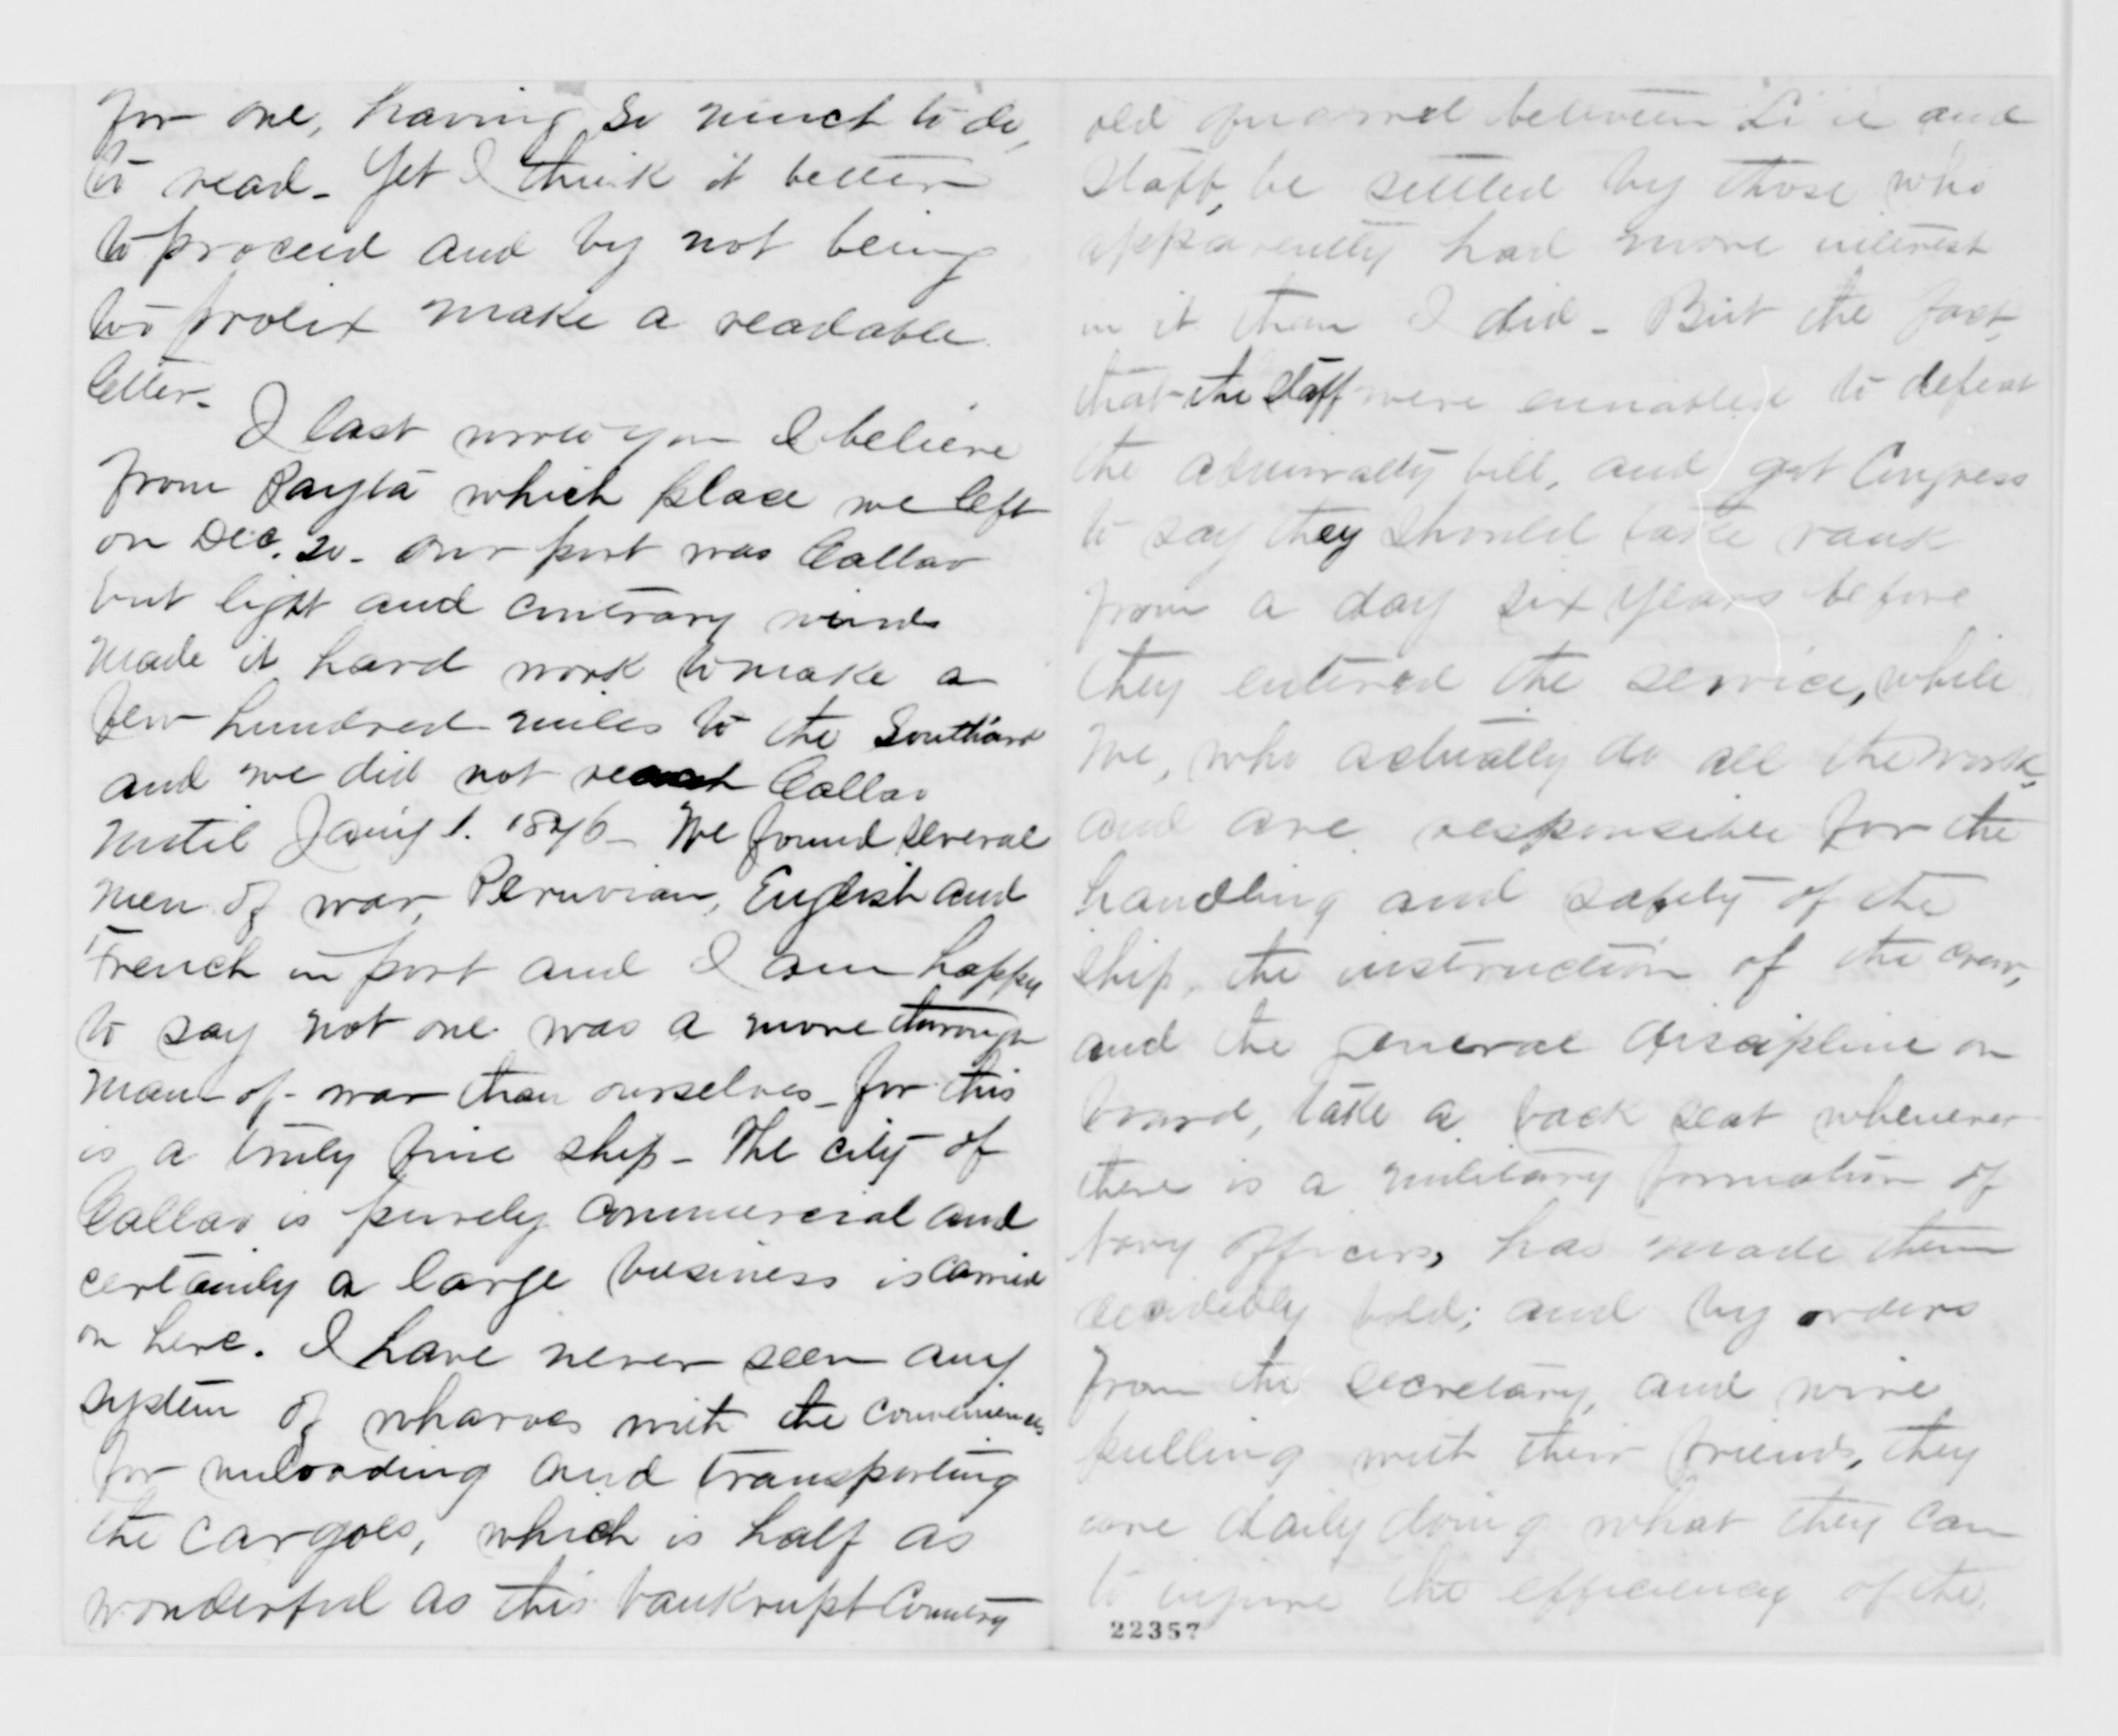 for one, having so much to do,
to read - Yet I think it better
to proceed and by not being
too prolix make a readable
letter -
I last wrote you I believe
from Payta which place we left
on Dec. 20 - Our port was Callao
but light and contrary winds
made it hard work to make a
few hundred miles to the South'ard
and we did not reach Callao
until Jan'y 1. 1876 - We found several
men of war, Peruvian, English and
French in port and I am happy
to say not one was a more through
man-of-war than ourselves - for this
is a truly fine ship - The city of
Callao is purely commercial and
certainly a large business is carried
on here. I have never seen any
system of wharves with the conveniences
for unloading and transporting
the cargoes, which is half as
wonderful as this bankrupt Country
old quarrel between Line and
Staff, be settled by those who
apparently had more interest
in it than I did - But the fact,
that the Staff were ennabled to defeat
the admiralty bill, and get Congress
to say they should take rank
from a day six years before
they entered the service, while
we, who actually do all the work,
and are responsible for the
handling and safety of the
ship, the instruction of the crew,
and the general discipline on
board, take a back seat whenever
there is a military formation of
Navy officers, has made them
decidedly bold; and by orders
from the secretary, and wire
pulling with their friends, they
are daily doing what they can
to injure the efficiency of the
22357